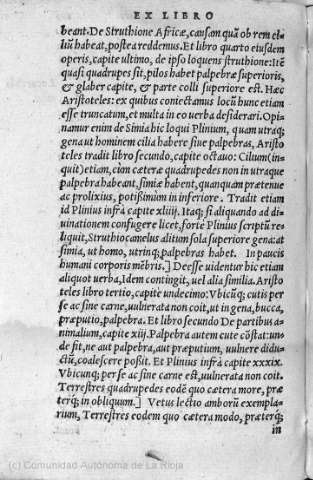 EX LIBRO
beant. De Struthione Africæ, causam quã ob rem ci-
liũ habeat, postea reddemus. Et libro quarto eiusdem
operis, capite ultimo, de ipso loquens struthione: Itẽ
quasi quadrupes sit, pilos habet palpebræ superioris,
& glaber capite, & parte colli superiore est. Hæc
Aristoteles: ex quibus coniectamus locũ hunc etiam
esse truncatum, et multa in eo uerba desiderari. Opi-
namur enim de Simia hic loqui Plinium, quam utraq;
gena ut hominem cilia habere siue palpebras, Aristo
teles tradit libro secundo, capite octauo: Cilium (in-
quit) etiam, cùm cæteræ quadrupedes non in utraque
palpebra habeant, simiæ habent, quanquam prætenue
ac prolixius, potißimùm in inferiore. Tradit etiam
id Plinius infrà capite xliiij. Itaq; si aliquando ad di-
uinationem confugere licet, fortè Plinius scriptũ re-
liquit, Struthiocamelus alitum sola superior gena: at
simia, ut homo, utrinq; palpebras habet. In paucis
humani corporis mẽbris.] Deesse uidentur hic etiam
aliquot uerba, Idem contingit, uel alia similia. Aristo
teles libro tertio, capite undecimo: Vbicũq; cutis per
se ac sine carne, uulnerata non coit, ut in gena, bucca,
præputio, palpebra. Et libro secundo De partibus a-
nimalium, capite xiij. Palpebra autem cute cõstat: un-
de fit, ne aut palpebra, aut præputium, uulnere didu-
ctũ, coalescere poßit. Et Plinius infrà capite xxxix.
Vbicunq; per se ac sine carne est, uulnerata non coit.
Terrestres quadrupedes eodẽ quo cætera more, præ-
terq; in obliquum.] Vetus lectio amborũ exempla-
rum, Terrestres eodem quo cætera modo, præterq;
in
(c) Comunidad Autónoma de La Rioja